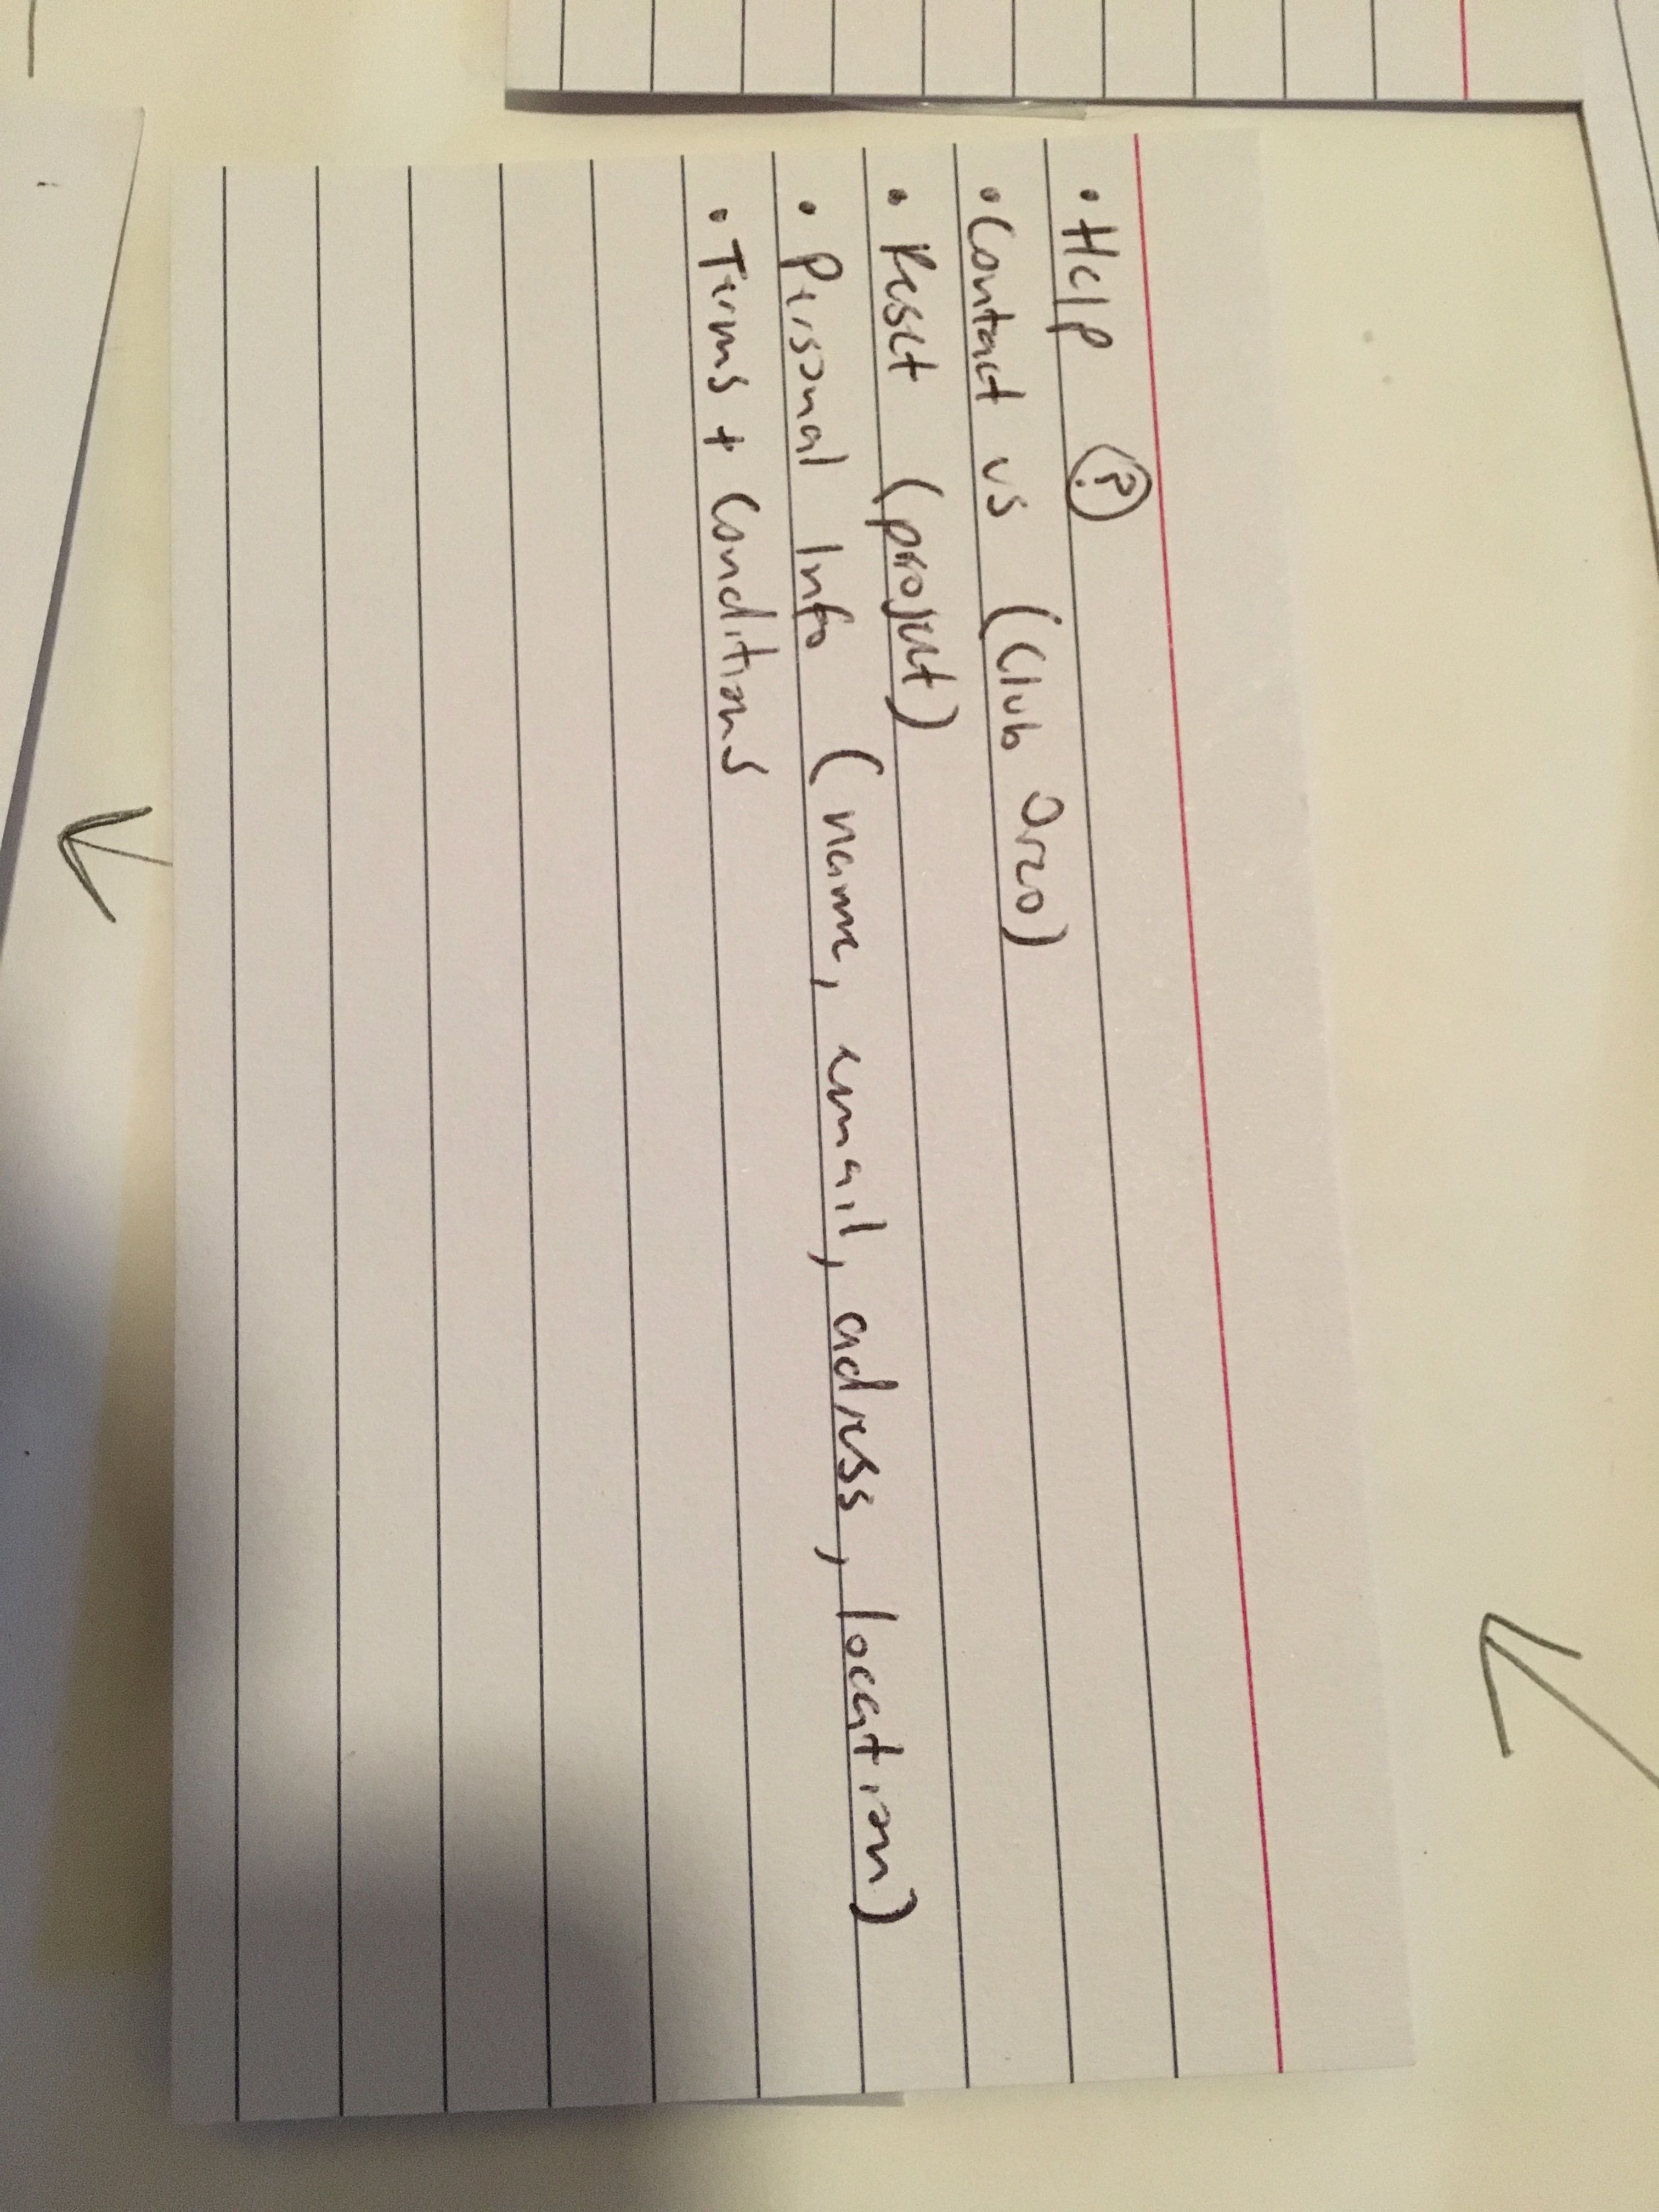 • Help ?
• Contact us (Club Orzo)
• Reset (project)
• Personal Info (name, email, adress, location)
• Terms + Conditions